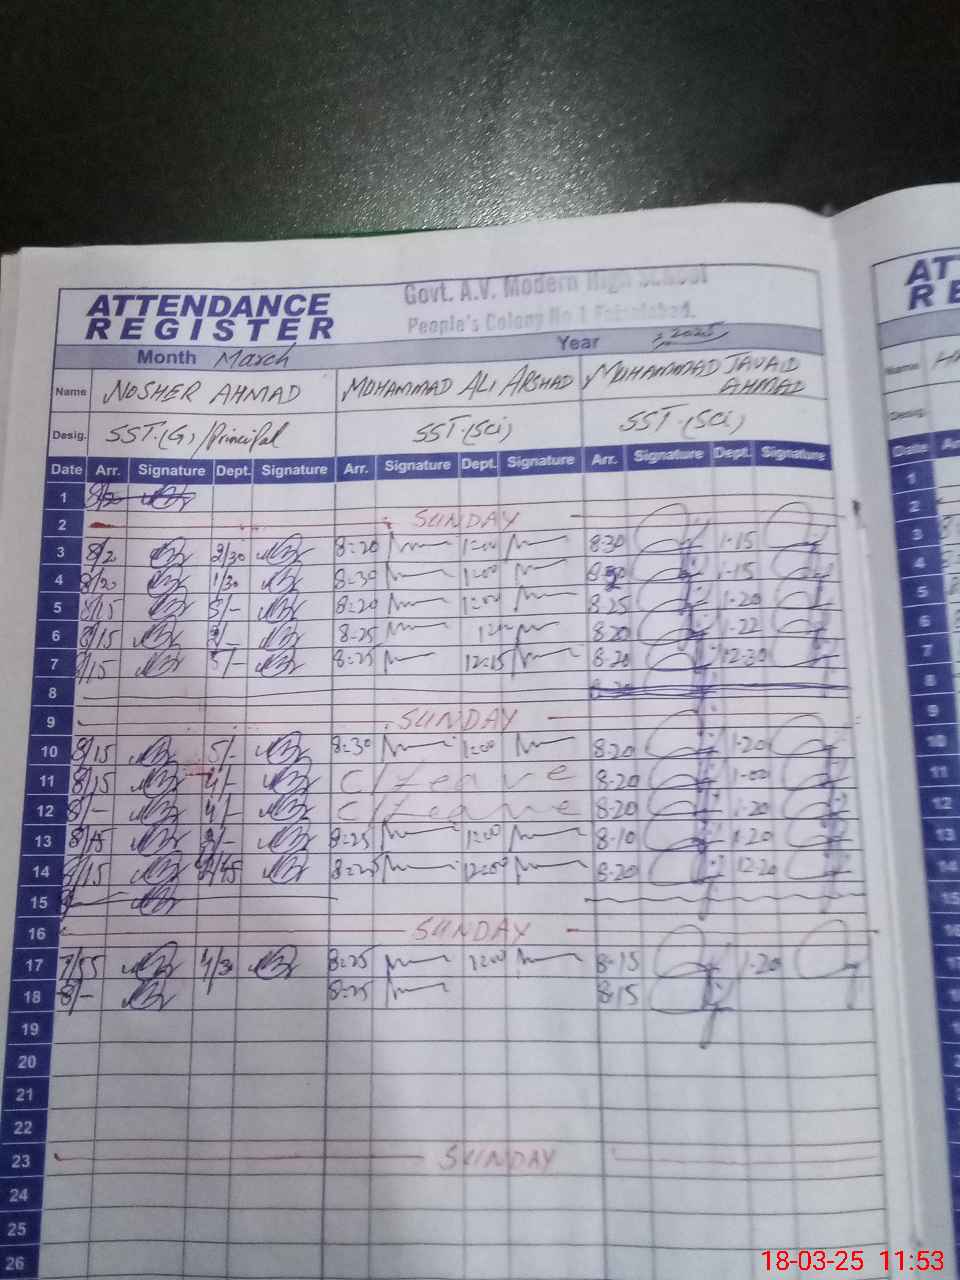 Govt. A.V. Modern High School
People's Colony No 1 Faisalabad.
ATTENDANCE
REGISTER
Month March Year 2025
Name NOSHER AHMAD MOHAMMAD ALI ARSHAD MUHAMMAD JAVAID AHMAD
Desig. SST.(G)/Principal SST.(Sci) SST.(Sci)
Date Arr. Signature Dept. Signature Arr. Signature Dept. Signature Arr. Signature Dept. Signature
1
2 SUNDAY
3 8/2 2/30 8=20 1=00 8-30 1-15
4 8/20 1/30 8=30 1=00 1-15
5 8/15 5/- 8=20 1=00 8-25 1-20
6 8/15 8=25 8-20 1-22
7 8/15 5/- 8=25 12=15 8-20 12-30
8
9 SUNDAY
10 8/15 5/- 8=30 1=00 8-20 1-20
11 8/15 4/- C/Leave 8-20 1-00
12 8/- 4/- C/Leave 8-20 1-20
13 8=25 1=00 8-10 1-20
14 8/15 12=00 8-20 12-20
15
16 SUNDAY
17 7/55 4/30 8=25 1=00 8-15 1-20
18 8/- 8=25 8-15
19
20
21
22
23 SUNDAY
24
25
26
AT
R E
Name
Desig.
Date
1
2
3
4
5
6
7
8
9
10
11
12
13
14
15
16
18-03-25 11:53